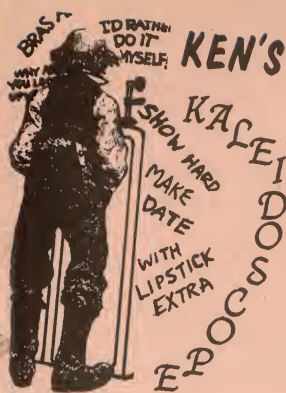 I'D RATHER
DO IT
MYSELF!
WHY
KEN'S
KALEIDOSCOPE
SHOW HARD
MAKE
DATE
WITH
LIPSTICK
EXTRA